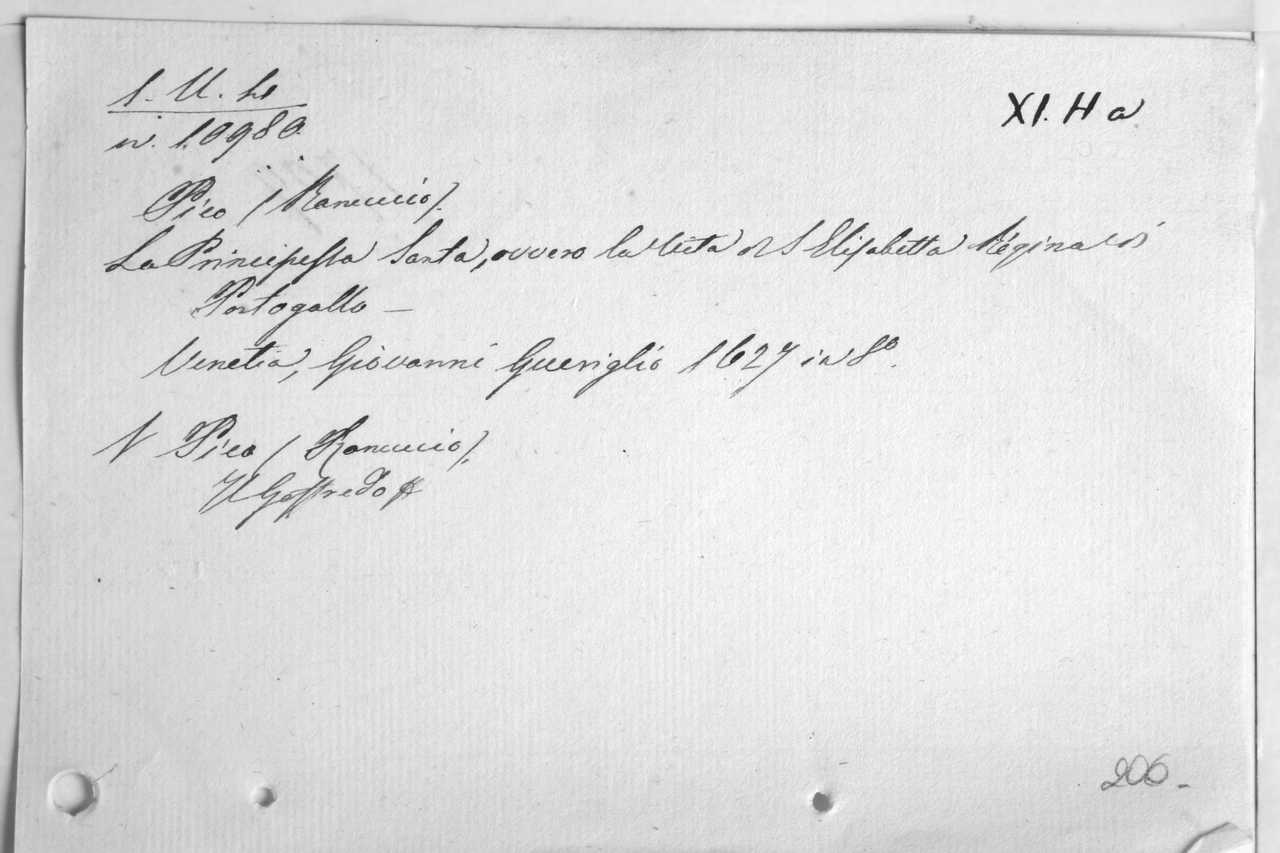 XI. H a
n. 10980.
Pico (Ranuccio).
La Principessa Santa, ovvero la Vita di S Elisabetta Regina di
Portogallo —
Venetia, Giovanni Guerriglio 1627 in 8º.
V Pico (Ranuccio).
Il Goffredo
206 -